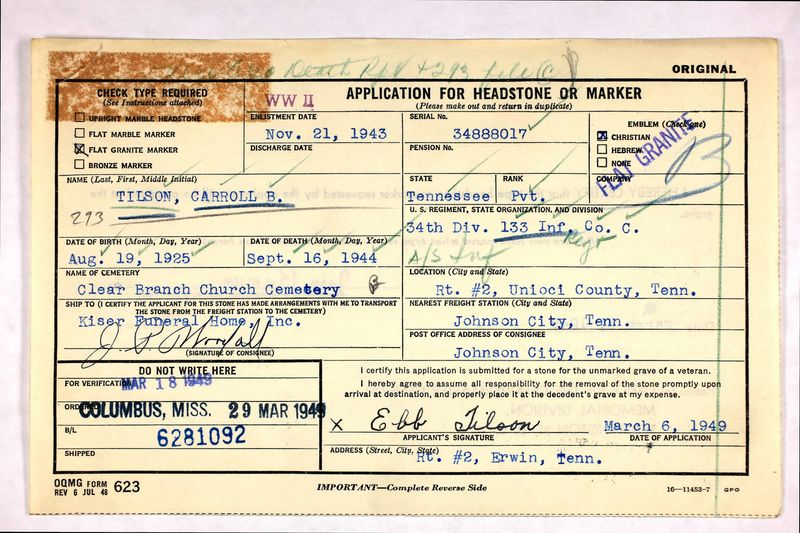 Death
ORIGINAL
CHECK TYPE REQUIRED
(See Instructions attached)
UPRIGHT MARBLE HEADSTONE
FLAT MARBLE MARKER
FLAT GRANITE MARKER
BRONZE MARKER
WW II
APPLICATION FOR HEADSTONE OR MARKER
(Please make out and return in duplicate)
ENLISTMENT DATE
Nov. 21, 1943
DISCHARGE DATE
SERIAL No.
34888017
PENSION No.
EMBLEM (Check one)
CHRISTIAN
HEBREW
NONE
FLAT GRANITE
B
NAME (Last, First, Middle Initial)
TILSON, CARROLL B.
293
STATE
Tennessee
RANK
Pvt.
COMPANY
U. S. REGIMENT, STATE ORGANIZATION, AND DIVISION
34th Div. 133 Inf. Co. C.
A/S Inf Regt
DATE OF BIRTH (Month, Day, Year)
Aug. 19, 1925
DATE OF DEATH (Month, Day, Year)
Sept. 16, 1944
NAME OF CEMETERY
Clear Branch Church Cemetery
LOCATION (City and State)
Rt. #2, Unioci County, Tenn.
SHIP TO (I CERTIFY THE APPLICANT FOR THIS STONE HAS MADE ARRANGEMENTS WITH ME TO TRANSPORT
THE STONE FROM THE FREIGHT STATION TO THE CEMETERY)
Kiser Funeral Home, Inc.
(SIGNATURE OF CONSIGNEE)
NEAREST FREIGHT STATION (City and State)
Johnson City, Tenn.
POST OFFICE ADDRESS OF CONSIGNEE
Johnson City, Tenn.
DO NOT WRITE HERE
FOR VERIFICATION
MAR 18 1949
ORDERED
COLUMBUS, MISS. 29 MAR 1949
B/L
6281092
SHIPPED
I certify this application is submitted for a stone for the unmarked grave of a veteran.
I hereby agree to assume all responsibility for the removal of the stone promptly upon
arrival at destination, and properly place it at the decedent's grave at my expense.
X Ebb Tilson
March 6, 1949
APPLICANT'S SIGNATURE
DATE OF APPLICATION
ADDRESS (Street, City, State)
Rt. #2, Erwin, Tenn.
OQMG FORM
REV 6 JUL 48
623
IMPORTANT—Complete Reverse Side
16—11453-7 GPO